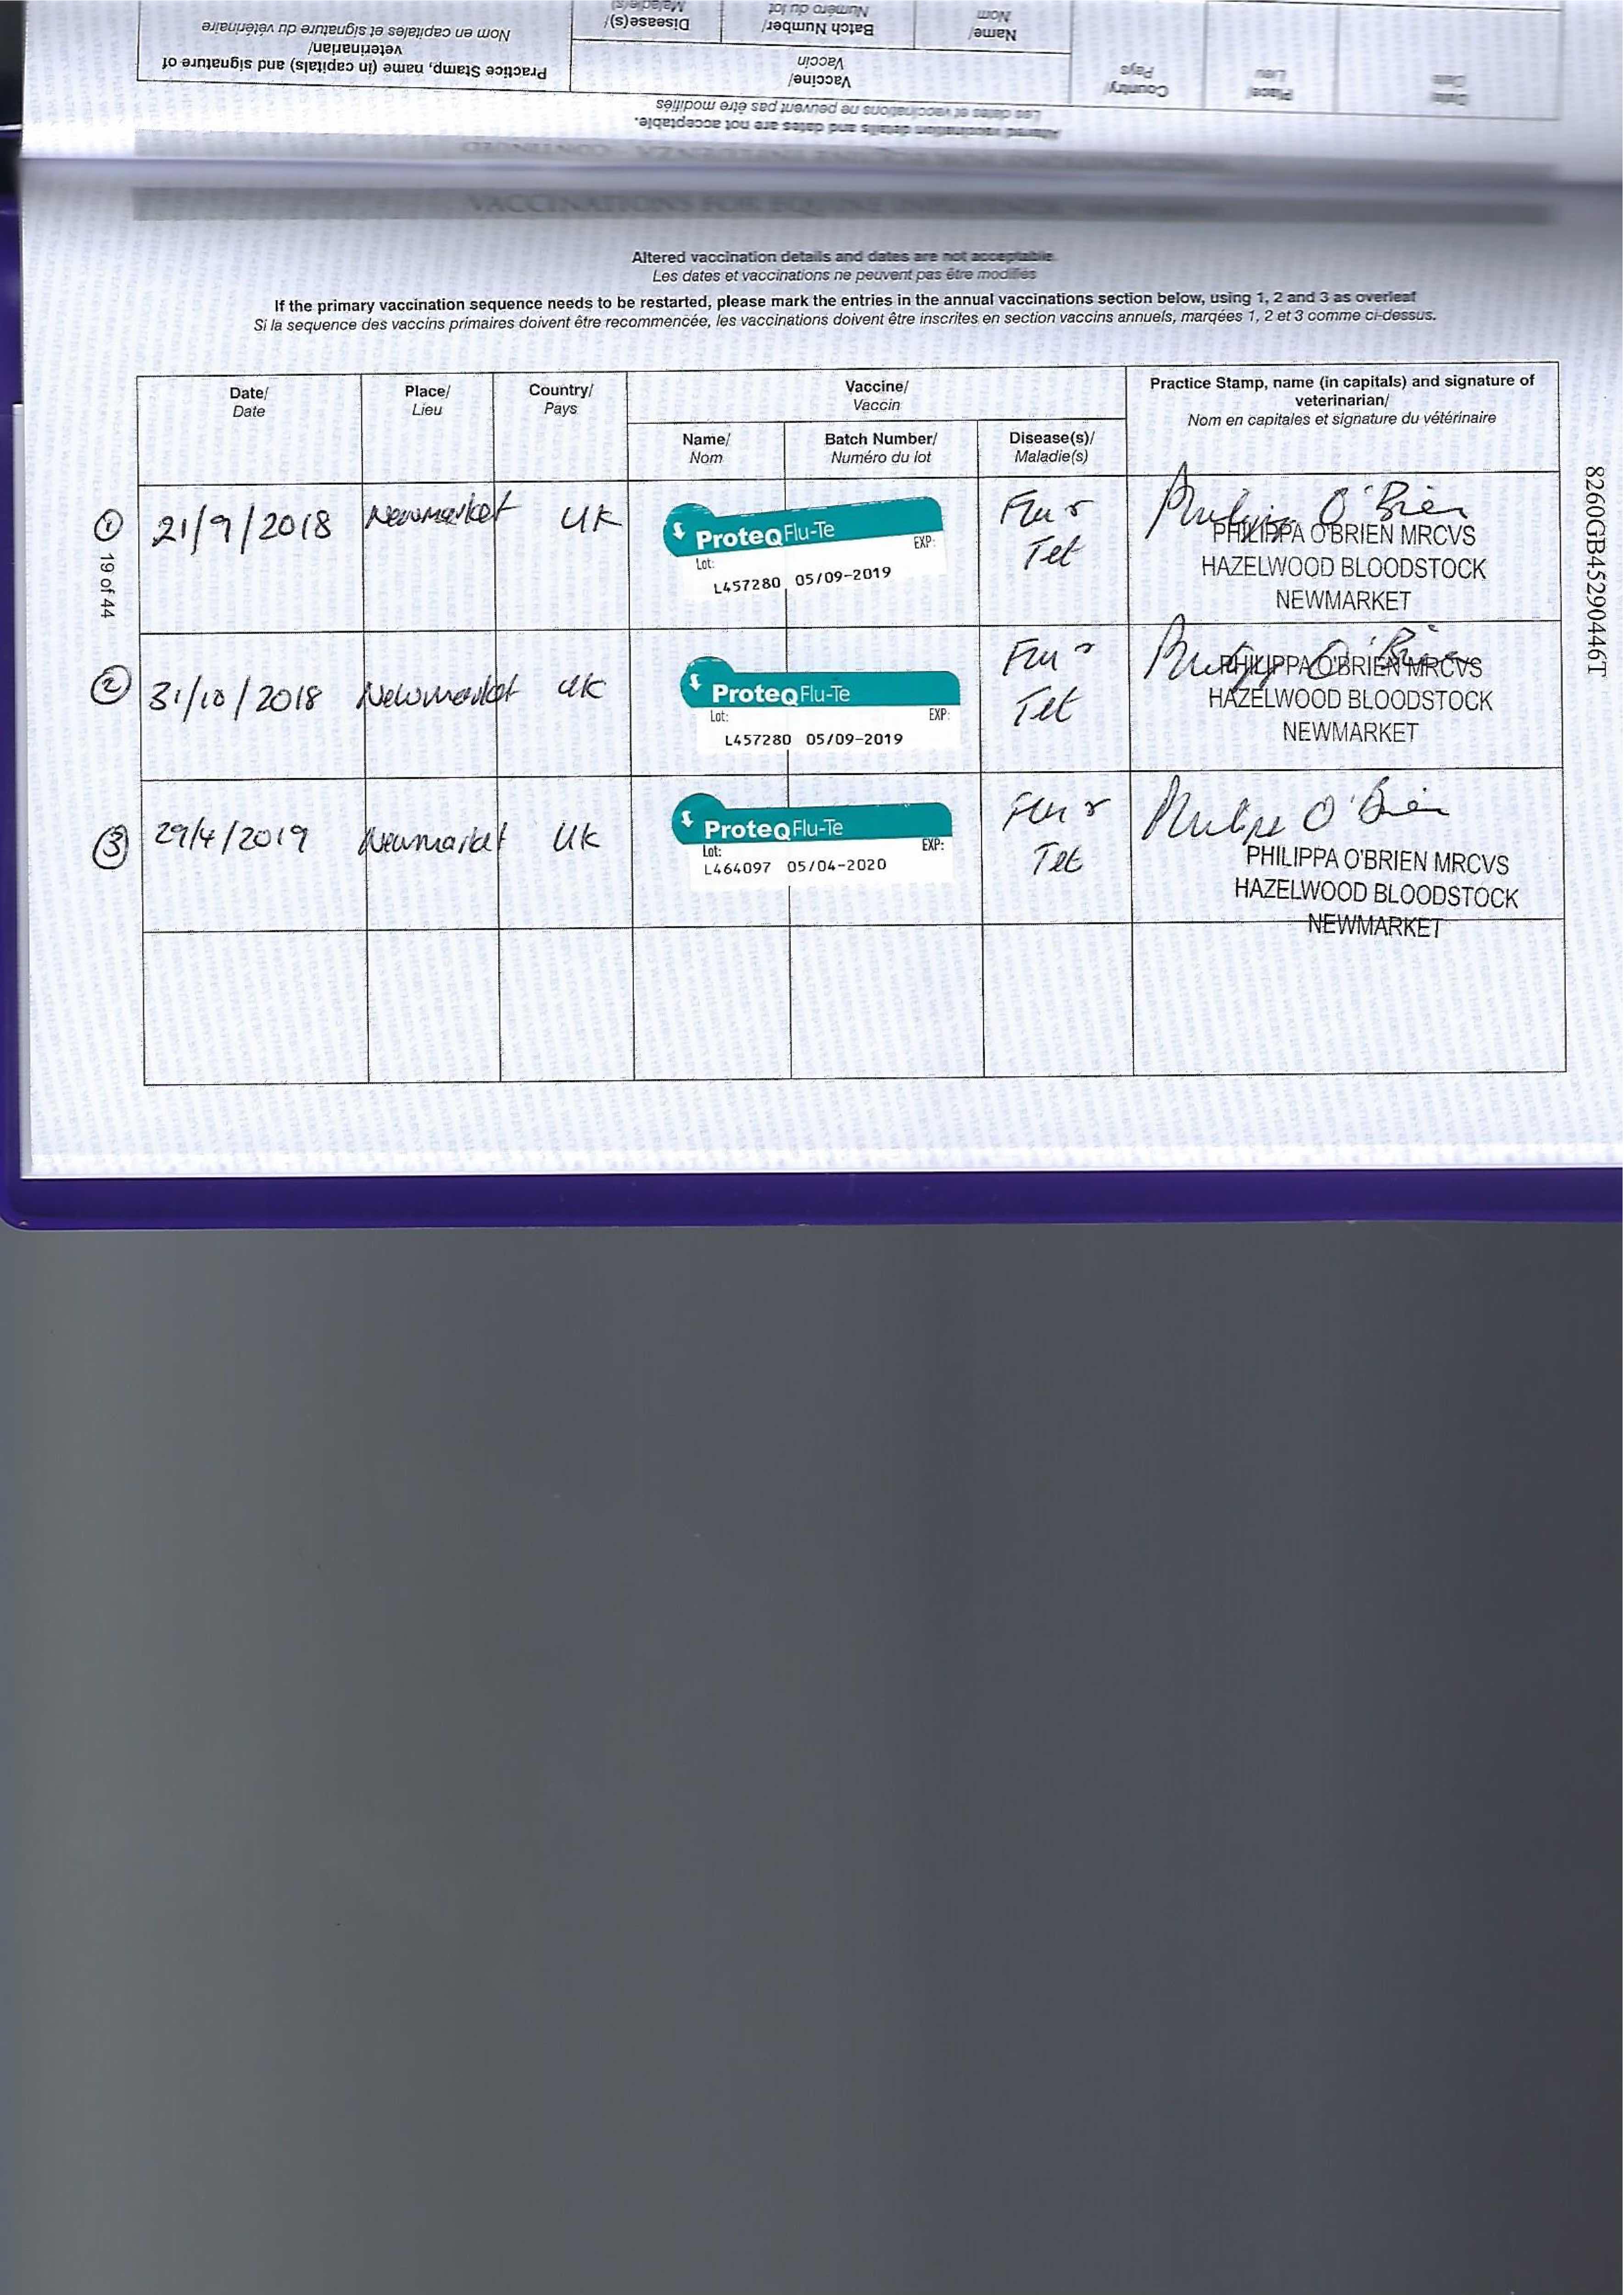 Nom en capitales et signature du vétérinaire
Practice Stamp, name (in capitals) and signature of
veterinarian/
Disease(s)/
Maladie(s)
Batch Number/
Numéro du lot
Name/
Nom
Vaccine/
Vaccin
Country/
Pays
Place/
Lieu
Date/
Date
Les dates et vaccinations ne peuvent pas être modifiés
Altered vaccination details and dates are not acceptable.
VACCINATIONS FOR EQUINE INFLUENZA
Altered vaccination details and dates are not acceptable.
Les dates et vaccinations ne peuvent pas être modifiés
If the primary vaccination sequence needs to be restarted, please mark the entries in the annual vaccinations section below, using 1, 2 and 3 as overleaf
Si la sequence des vaccins primaires doivent être recommencée, les vaccinations doivent être inscrites en section vaccins annuels, marqées 1, 2 et 3 comme ci-dessus.
Date/
Date
Place/
Lieu
Country/
Pays
Vaccine/
Vaccin
Name/
Nom
Batch Number/
Numéro du lot
Disease(s)/
Maladie(s)
Practice Stamp, name (in capitals) and signature of
veterinarian/
Nom en capitales et signature du vétérinaire
1 21/9/2018 Newmarket UK
ProteqFlu-Te
Lot: EXP:
L457280 05/09-2019
Flu &
Tet
Philippa O'Brien
PHILIPPA O'BRIEN MRCVS
HAZELWOOD BLOODSTOCK
NEWMARKET
2 31/10/2018 Newmarket UK
ProteqFlu-Te
Lot: EXP:
L457280 05/09-2019
Flu &
Tet
Philippa O'Brien
PHILIPPA O'BRIEN MRCVS
HAZELWOOD BLOODSTOCK
NEWMARKET
3 29/4/2019 Newmarket UK
ProteqFlu-Te
Lot: EXP:
L464097 05/04-2020
Flu &
Tet
Philippa O'Brien
PHILIPPA O'BRIEN MRCVS
HAZELWOOD BLOODSTOCK
NEWMARKET
19 of 44
8260GB45290446T